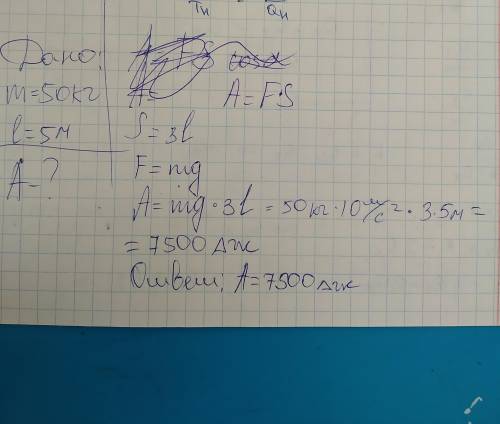 Tн Qн
Дано:
m=50кг
l=5м
A-?
A=
A=F·S
S=3l
F=mg
A=mg·3l=50кг·10м/с²·3·5м=
=7500Дж
Ответ: A=7500Дж